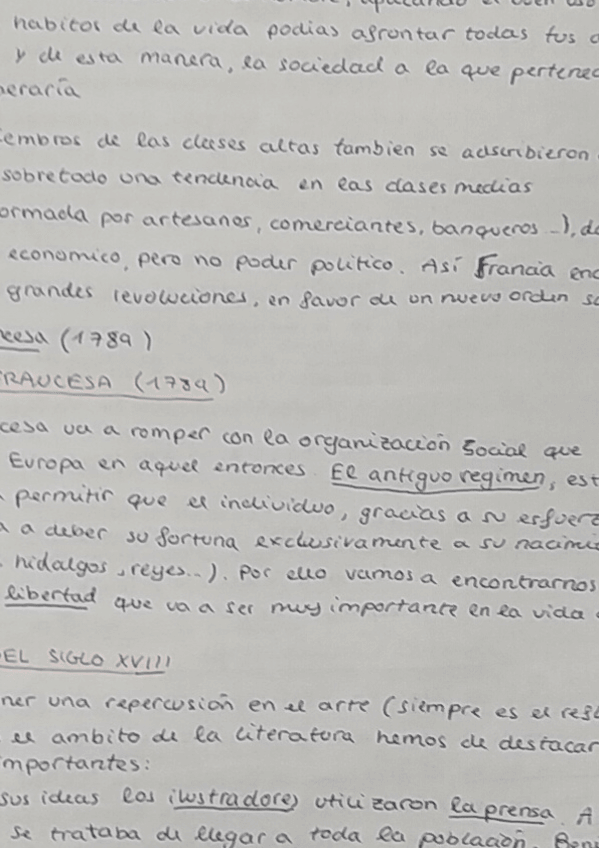 habitos de la vida podias afrontar todas tus
y de esta manera, la sociedad a la que pertenec
neraría
embros de las clases altas tambien se adscribieron
sobretodo una tendencia en las clases medias
ormada por artesanos, comerciantes, banqueros ...), d
economico, pero no poder politico. Así Francia en
grandes revoluciones, en favor de un nuevo orden s
cesa (1789)
RANCESA (1789)
cesa va a romper con la organización social que
Europa en aquel entonces. El antiguo regimen, est
permitir que el individuo, gracias a su esfuerz
a deber su fortuna exclusivamente a su nacimi
hidalgos, reyes...). Por ello vamos a encontrarnos
libertad que va a ser muy importante en la vida
EL SIGLO XVIII
ner una repercusión en el arte (siempre es el refl
el ambito de la literatura hemos de destacar
mportantes:
sus ideas los ilustradores utilizaron la prensa. A
se trataba de llegar a toda la población.